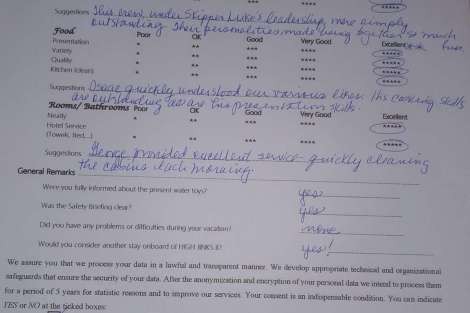 Suggestions This crew, under Skipper Luke's leadership, were simply
outstanding. Their personalities made being together so much fun.
Food Poor OK Good Very Good Excellent
Presentation * ** *** **** *****
Variety * ** *** **** *****
Quality * ** *** **** *****
Kitchen (clean) * ** *** **** *****
Suggestions quickly understood our various likes. His cooking skills
are outstanding as are his presentation skills.
Rooms/ Bathrooms Poor OK Good Very Good Excellent
Neatly * ** *** **** *****
Hotel Service
(Towels, Bed...) * ** *** **** *****
Suggestions George provided excellent service - quickly cleaning
the cabins each morning.
General Remarks
Were you fully informed about the present water toys? yes
Was the Safety Briefing clear? yes
Did you have any problems or difficulties during your vacation? none
Would you consider another stay onboard of HIGH JINKS II? yes!
We assure you that we process your data in a lawful and transparent manner. We develop appropriate technical and organizational
safeguards that ensure the security of your data. After the anonymization and encryption of your personal data we intend to process them
for a period of 5 years for statistic reasons and to improve our services. Your consent is an indispensable condition. You can indicate
YES or NO at the ticked boxes: